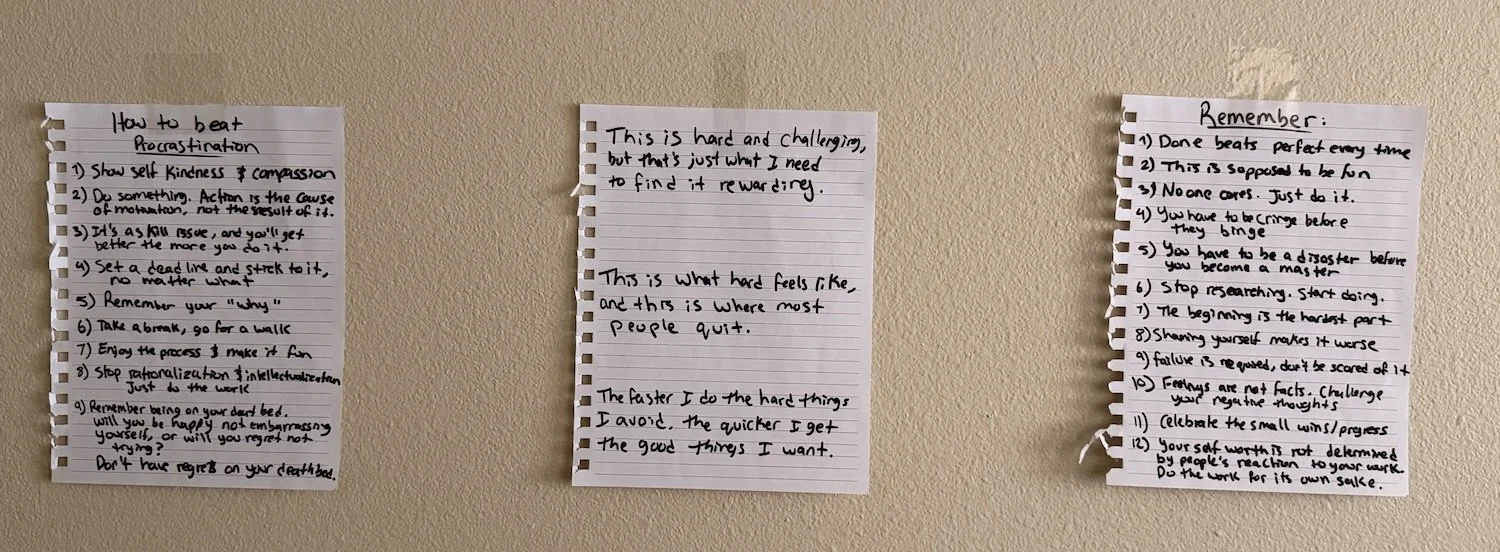 How to beat
Procrastination
1) Show self kindness & compassion
2) Do something. Action is the cause
of motivation, not the result of it.
3) It's a skill issue, and you'll get
better the more you do it.
4) Set a deadline and stick to it,
no matter what
5) Remember your "why"
6) Take a break, go for a walk
7) Enjoy the process & make it fun
8) Stop rationalization & intellectualization
Just do the work
9) Remember being on your death bed.
will you be happy not embarrassing
yourself, or will you regret not
trying?
Don't have regrets on your deathbed.
This is hard and challenging,
but that's just what I need
to find it rewarding.
This is what hard feels like,
and this is where most
people quit.
The faster I do the hard things
I avoid, the quicker I get
the good things I want.
Remember:
1) Done beats perfect every time
2) This is supposed to be fun
3) No one cares. Just do it.
4) You have to be cringe before
they binge
5) You have to be a disaster before
you become a master
6) Stop researching. Start doing.
7) The beginning is the hardest part
8) Shaming yourself makes it worse
9) failure is required, don't be scared of it
10) Feelings are not facts. Challenge
your negative thoughts
11) Celebrate the small wins/progress
12) Your self worth is not determined
by people's reaction to your work.
Do the work for its own sake.